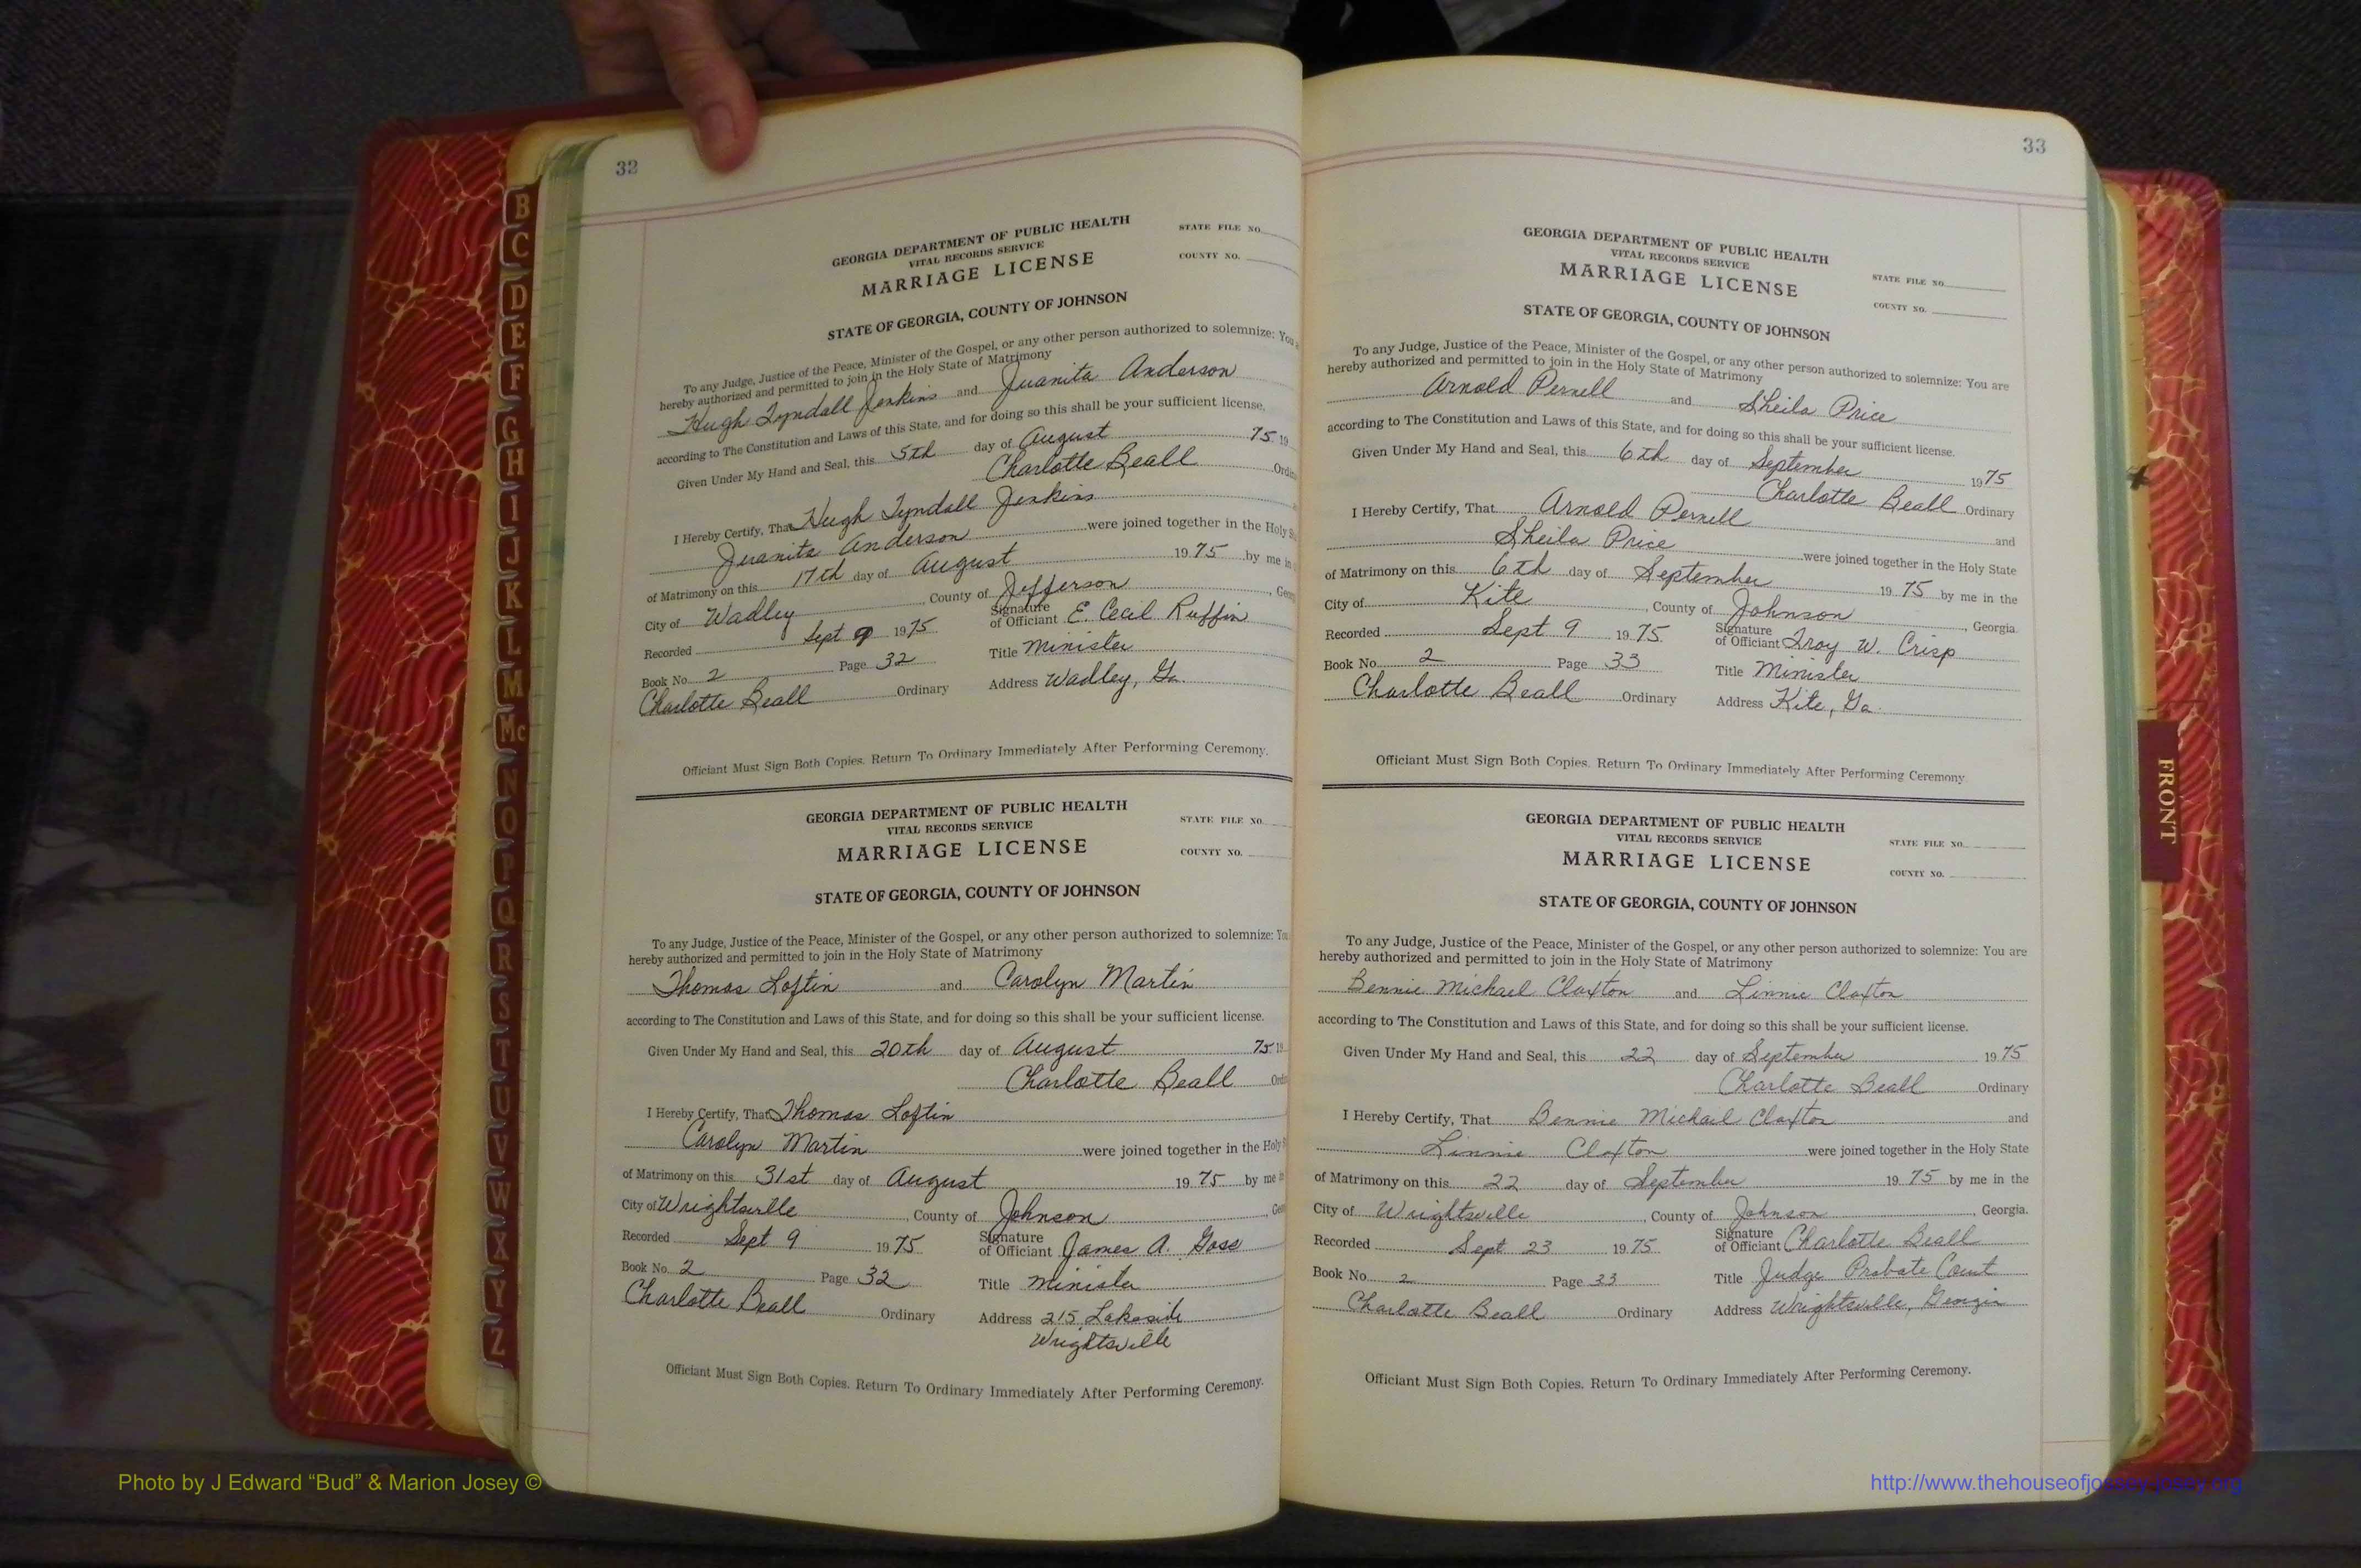 32
GEORGIA DEPARTMENT OF PUBLIC HEALTH
VITAL RECORDS SERVICE
MARRIAGE LICENSE
STATE FILE NO.
COUNTY NO.
STATE OF GEORGIA, COUNTY OF JOHNSON
To any Judge, Justice of the Peace, Minister of the Gospel, or any other person authorized to solemnize: You
hereby authorized and permitted to join in the Holy State of Matrimony
Hugh Tyndall Jenkins and Juanita Anderson
according to The Constitution and Laws of this State, and for doing so this shall be your sufficient license.
Given Under My Hand and Seal, this 5th day of August 75 19
Charlotte Beall
I Hereby Certify, That Hugh Tyndall Jenkins
Juanita Anderson were joined together in the Holy
of Matrimony on this 17th day of August 1975 by me in
City of Wadley, County of Jefferson
Recorded Sept 9 1975 Signature of Officiant E. Cecil Ruffin
Book No. 2 Page 32 Title Minister
Charlotte Beall Ordinary Address Wadley, Ga.
Officiant Must Sign Both Copies. Return To Ordinary Immediately After Performing Ceremony.
GEORGIA DEPARTMENT OF PUBLIC HEALTH
VITAL RECORDS SERVICE
MARRIAGE LICENSE
STATE FILE NO.
COUNTY NO.
STATE OF GEORGIA, COUNTY OF JOHNSON
To any Judge, Justice of the Peace, Minister of the Gospel, or any other person authorized to solemnize: You
hereby authorized and permitted to join in the Holy State of Matrimony
Thomas Loftin and Carolyn Martin
according to The Constitution and Laws of this State, and for doing so this shall be your sufficient license.
Given Under My Hand and Seal, this 20th day of August 75 19
Charlotte Beall
I Hereby Certify, That Thomas Loftin
Carolyn Martin were joined together in the Holy
of Matrimony on this 31st day of August 1975 by me
City of Wrightsville, County of Johnson
Recorded Sept 9 1975 Signature of Officiant James A. Goss
Book No. 2 Page 32 Title Minister
Charlotte Beall Ordinary Address 215 Lakeside
Wrightsville
Officiant Must Sign Both Copies. Return To Ordinary Immediately After Performing Ceremony.
33
GEORGIA DEPARTMENT OF PUBLIC HEALTH
VITAL RECORDS SERVICE
MARRIAGE LICENSE
STATE FILE NO.
COUNTY NO.
STATE OF GEORGIA, COUNTY OF JOHNSON
To any Judge, Justice of the Peace, Minister of the Gospel, or any other person authorized to solemnize: You are
hereby authorized and permitted to join in the Holy State of Matrimony
Arnold Pernell and Sheila Price
according to The Constitution and Laws of this State, and for doing so this shall be your sufficient license.
Given Under My Hand and Seal, this 6th day of September 1975
Charlotte Beall Ordinary
I Hereby Certify, That Arnold Pernell
Sheila Price and
were joined together in the Holy State
of Matrimony on this 6th day of September 1975 by me in the
City of Kite, County of Johnson, Georgia.
Recorded Sept 9 1975 Signature of Officiant Troy W. Crisp
Book No. 2 Page 33 Title Minister
Charlotte Beall Ordinary Address Kite, Ga.
Officiant Must Sign Both Copies. Return To Ordinary Immediately After Performing Ceremony.
GEORGIA DEPARTMENT OF PUBLIC HEALTH
VITAL RECORDS SERVICE
MARRIAGE LICENSE
STATE FILE NO.
COUNTY NO.
STATE OF GEORGIA, COUNTY OF JOHNSON
To any Judge, Justice of the Peace, Minister of the Gospel, or any other person authorized to solemnize: You are
hereby authorized and permitted to join in the Holy State of Matrimony
Bennie Michael Claxton and Linnie Claxton
according to The Constitution and Laws of this State, and for doing so this shall be your sufficient license.
Given Under My Hand and Seal, this 22 day of September 1975
Charlotte Beall Ordinary
I Hereby Certify, That Bennie Michael Claxton and
Linnie Claxton were joined together in the Holy State
of Matrimony on this 22 day of September 1975 by me in the
City of Wrightsville, County of Johnson, Georgia.
Recorded Sept 23 1975 Signature of Officiant Charlotte Beall
Book No. 2 Page 33 Title Judge Probate Court
Charlotte Beall Ordinary Address Wrightsville, Georgia
Officiant Must Sign Both Copies. Return To Ordinary Immediately After Performing Ceremony.
B
C
D
E
F
G
H
I
J
K
L
M
Mc
N
O
P
Q
R
S
T
U
V
W
X
Y
Z
FRONT
Photo by J Edward “Bud” & Marion Josey ©
http://www.thehouseofjossey-josey.org